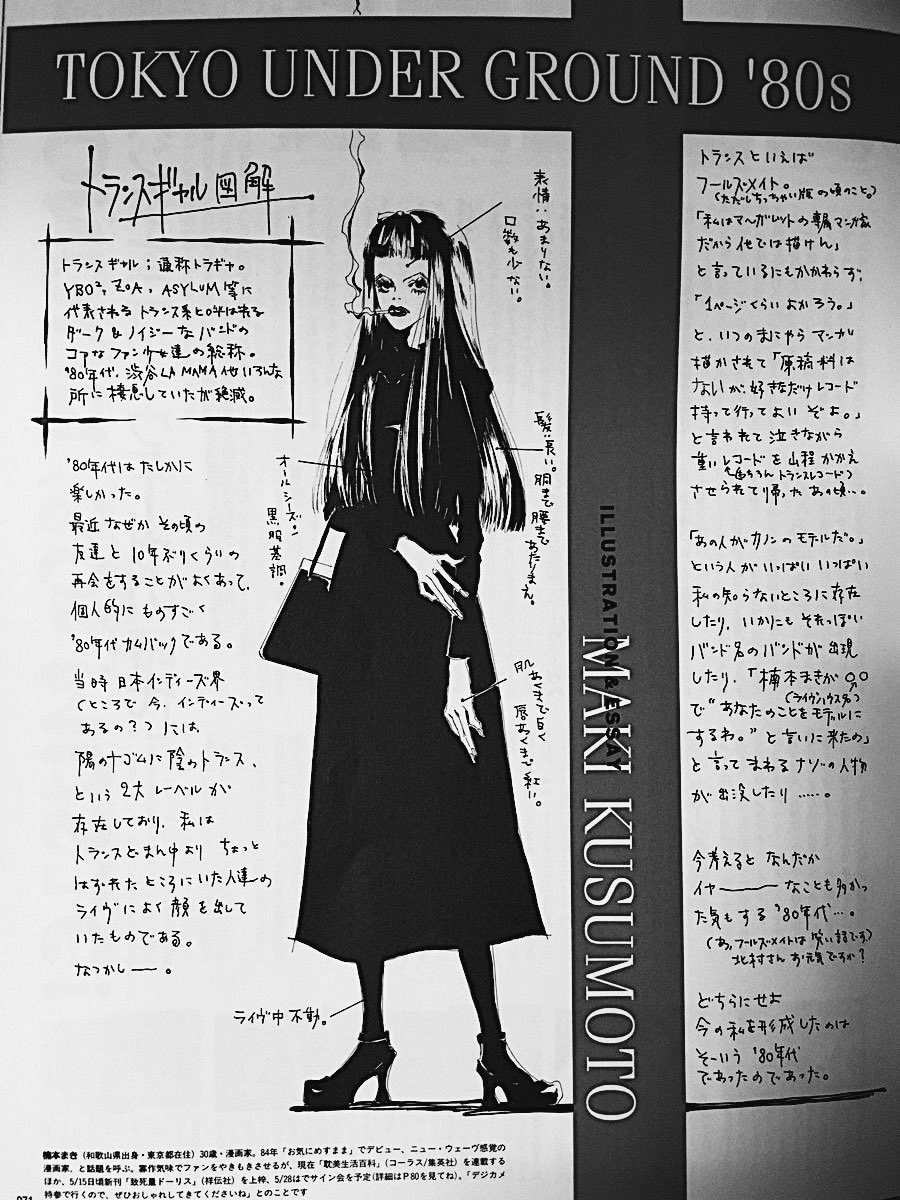 TOKYO UNDER GROUND '80s
トランスギャル図解
トランスギャル;通称トラギャ。
YBO²,ZOA,ASYLUM等に
代表されるトランス系と呼ばれる
ダーク&ノイジーなバンドの
コアなファン少女達の総称。
'80年代、渋谷LA MAMA他いろんな
所に棲息していたが絶滅。
'80年代はたしかに
楽しかった。
最近なぜかその頃の
友達と10年ぶりくらいの
再会をすることがよくあって、
個人的にものすごく
'80年代カムバックである。
当時日本インディーズ界
(ところで今、インディーズって
あるの?)には
陽のナゴムに陰のトランス、
という2大レーベルが
存在しており、私は
トランスどまん中よりちょっと
はずれたところにいた人達の
ライヴによく顔を出して
いたものである。
なつかしー。
表情:あまりない。
口数も少ない。
髪:長い。胴まで腰まで
あたりまえ。
オールシーズン
黒服基調。
肌あくまで白く
唇あくまで紅い。
ライヴ中不動。
ILLUSTRATION & ESSAY
MAKI KUSUMOTO
トランスといえば
フールズメイト。
(ただしちっちゃい版の頃のこと。)
「私はマーガレットの専属マンガ家
だから他では描けん」
と言っているにもかかわらず、
「1ページくらいよかろう。」
と、いつのまにやらマンガ
描かされて「原稿料は
ないが、好きなだけレコード
持って行ってよいぞよ。」
と言われて泣きながら
重いレコードを山程かかえ
(もちろんトランスレコード)
させられて帰ったあの頃…。
「あの人がカノンのモデルだ。」
という人がいっぱいいっぱい
私の知らないところに存在
したり、いかにもそれっぽい
バンド名のバンドが出現
したり、「楠本まきが○○
(ライヴハウス名)
で“あなたのことをモデルに
するわ。”と言いに来たの」
と言ってまわるナゾの人物
が出没したり……。
今考えるとなんだか
イヤーーなことも多かっ
た気もする'80年代…。
(あっ、フールズメイトは笑い話です)
北村さんお元気ですか?
どちらにせよ
今の私を形成したのは
そーいう'80年代
であったのであった。
楠本まき(和歌山県出身・東京都在住)30歳・漫画家。84年「お気にめすまま」でデビュー、ニュー・ウェーヴ感覚の
漫画家、と話題を呼ぶ。寡作気味でファンをやきもきさせるが、現在「耽美生活百科」(コーラス/集英社)を連載する
ほか、5/15日頃新刊「致死量ドーリス」(祥伝社)を上梓、5/28はでサイン会を予定(詳細はP80を見てね)。「デジカメ
持参で行くので、ぜひおしゃれしてきてくださいね」とのことです
071